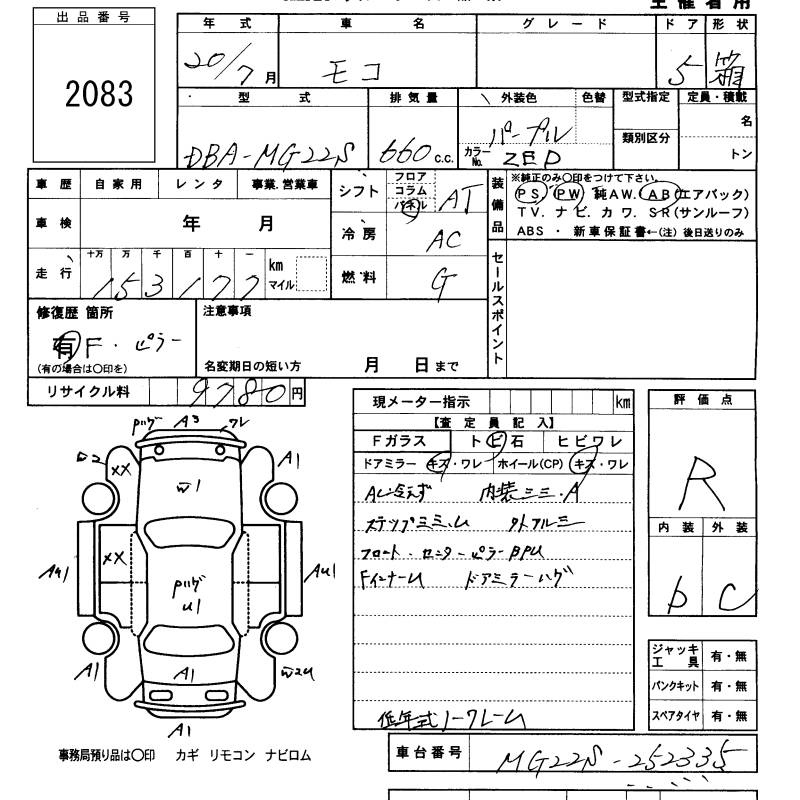 主催者用
出品番号
2083
年式 車名 グレード ドア 形状
20/7月 モコ 5 箱
型式 排気量 外装色 色替 型式指定 定員・積載
DBA-MG22S 660c.c. パープル 類別区分 名
カラーNo. ZED トン
車歴 自家用 レンタ 事業.営業車
シフト フロア コラム パネル AT
車検 年 月
冷房 AC
走行 十万 万 千 百 十 一 km マイル
153177
燃料 G
装備品
※純正のみ○印をつけて下さい。
PS. PW 純AW. AB(エアバック)
TV. ナビ. カワ. SR(サンルーフ)
ABS ・ 新車保証書←(注) 後日送りのみ
セールスポイント
修復歴 箇所
有 F・ピラー
(有の場合は○印を)
注意事項
名変期日の短い方 月 日まで
リサイクル料 9780円
現メーター指示 km
【査定員記入】
Fガラス トビ石 ヒビワレ
ドアミラー キズ・ワレ ホイール(CP) キズ・ワレ
AC冷えず 内装ミミ.A
ステップミミ.U 外アルミ
フロート・センターピラーBPU
FインナーU ドアミラーハゲ
低年式ノークレーム
評価点
R
内装 外装
D C
ジャッキ工具 有・無
パンクキット 有・無
スペアタイヤ 有・無
Pハゲ A3 ワレ
W2 XX A1
W1
XX
AU1 Pハゲ U1 AU1
A1 A1 W2U
A1
事務局預り品は○印 カギ リモコン ナビロム
車台番号 MG22S-252335